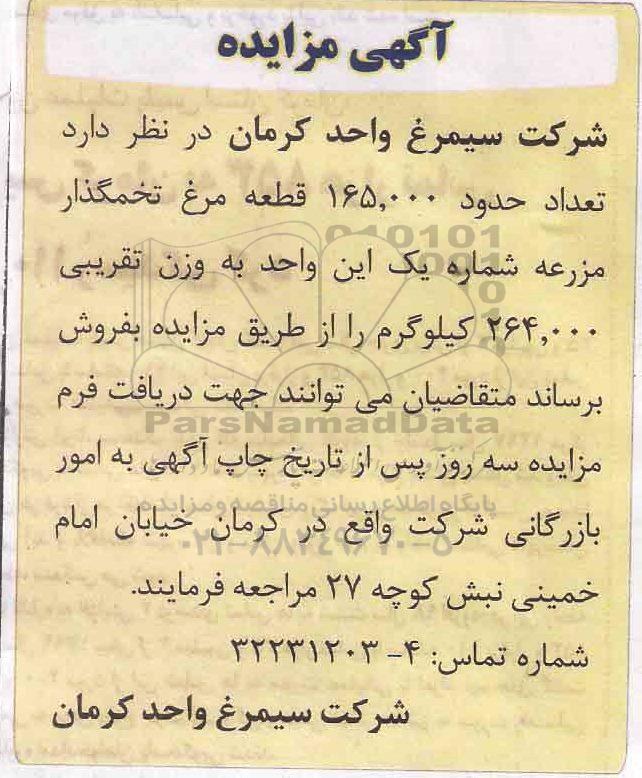 آگهی مزایده
شرکت سیمرغ واحد کرمان در نظر دارد
تعداد حدود ۱۶۵,۰۰۰ قطعه مرغ تخمگذار
مزرعه شماره یک این واحد به وزن تقریبی
۲۶۴,۰۰۰ کیلوگرم را از طریق مزایده بفروش
برساند متقاضیان می توانند جهت دریافت فرم
ParsNamadData
مزایده سه روز پس از تاریخ چاپ آگهی به امور
پایگاه اطلاع رسانی مناقصه و مزایده
بازرگانی شرکت واقع در کرمان خیابان امام
خمینی نبش کوچه ۲۷ مراجعه فرمایند.
شماره تماس: ۴- ۳۲۲۳۱۲۰۳
شرکت سیمرغ واحد کرمان